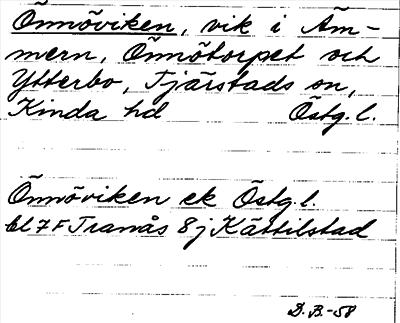 Önnöviken, vik i Äm-
mern, Önnötorpet och
Ytterbo, Tjärstads sn,
Kinda hd Östg. l.
Önnöviken ek Östg. l.
bl 7 F Tranås 8 j Kättilstad
D. B. -58